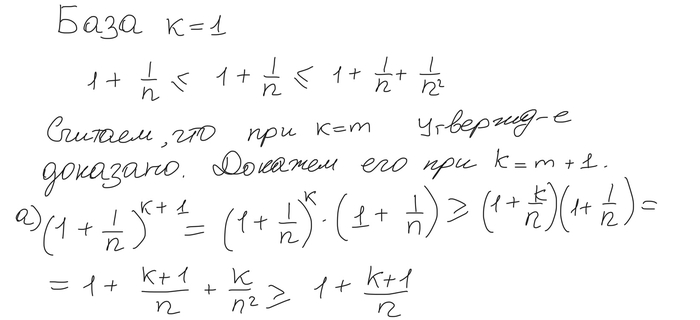 База k=1
1 + 1/n ≤ 1 + 1/n ≤ 1 + 1/n + 1/n²
Считаем, что при k=m утвержд-е
доказано. Докажем его при k=m+1.
а) (1 + 1/n)^(k+1) = (1 + 1/n)^k · (1 + 1/n) ≥ (1 + k/n)(1 + 1/n) =
= 1 + (k+1)/n + k/n² ≥ 1 + (k+1)/n